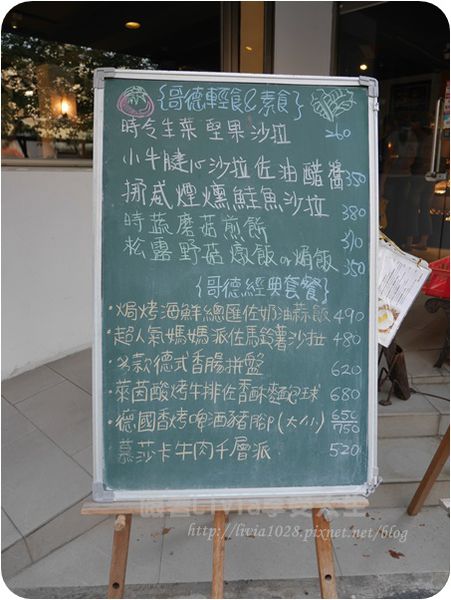 {哥德輕食&素食}
時令生菜堅果沙拉 260
小牛腱心沙拉佐油醋醬 350
挪威煙燻鮭魚沙拉 380
時蔬蘑菇煎餅 310
松露野菇燉飯or焗飯 350
{哥德經典套餐}
·焗烤海鮮總匯佐奶油蒜飯 490
·超人氣媽媽派佐馬鈴薯沙拉 480
·多款德式香腸拼盤 620
·萊茵酸烤牛排佐香酥麵包球 680
·德國香烤啤酒豬腳(大/小) 650/750
慕莎卡牛肉千層派 520
http://livia1028.pixnet.net/blog